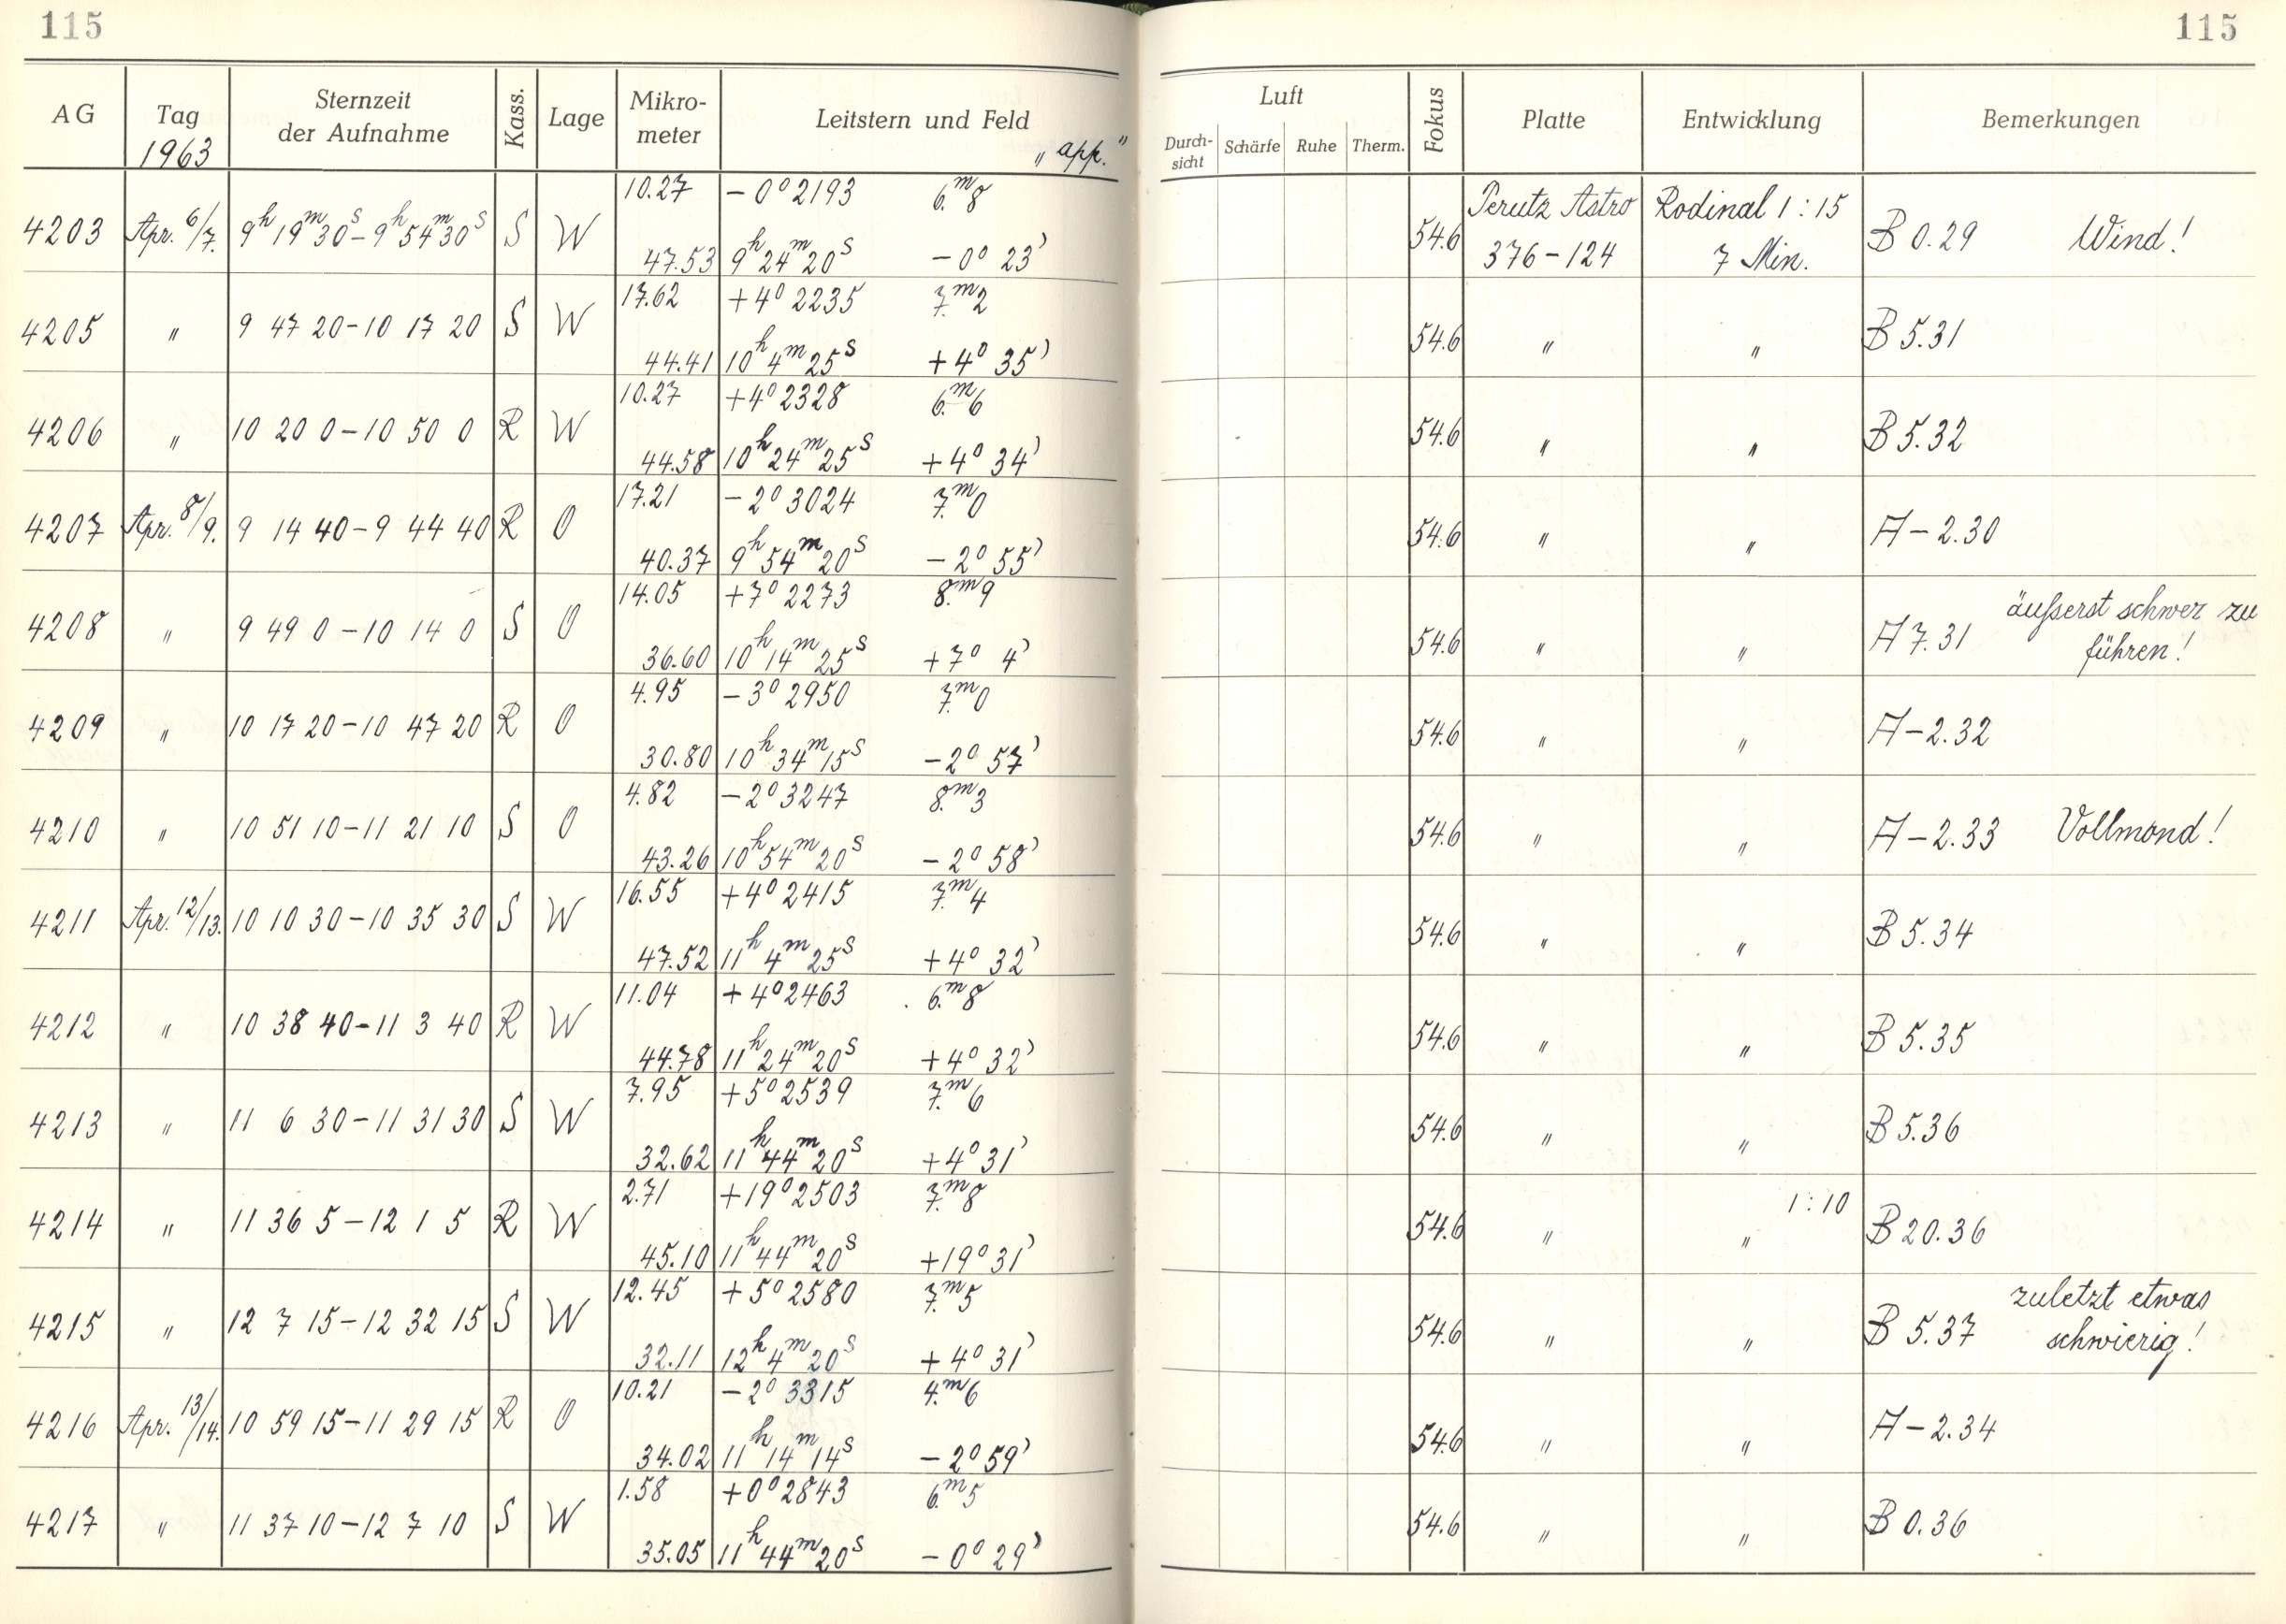 115 115
AG Tag 1963 Sternzeit der Aufnahme Kass. Lage Mikro-meter Leitstern und Feld "app." Luft Durch-sicht Schärfe Ruhe Therm. Fokus Platte Entwicklung Bemerkungen
10.27 -0° 2193 6.m8 Perutz Astro Rodinal 1:15
4203 Apr. 6/7. 9h 19m 30s - 9h 54m 30s S W 54.6 B 0.29 Wind!
47.53 9h 24m 20s -0° 23' 376-124 7 Min.
17.62 +4° 2235 7.m2
4205 " 9 47 20 - 10 17 20 S W 54.6 " " B 5.31
44.41 10h 4m 25s +4° 35'
10.27 +4° 2328 6.m6
4206 " 10 20 0 - 10 50 0 R W 54.6 " " B 5.32
44.58 10h 24m 25s +4° 34'
17.21 -2° 3024 7.m0
4207 Apr. 8/9. 9 14 40 - 9 44 40 R O 54.6 " " A -2.30
40.37 9h 54m 20s -2° 55'
14.05 +7° 2273 8.m9 äußerst schwer zu
4208 " 9 49 0 - 10 14 0 S O 54.6 " " A 7.31 führen!
36.60 10h 14m 25s +7° 4'
4.95 -3° 2950 7.m0
4209 " 10 17 20 - 10 47 20 R O 54.6 " " A -2.32
30.80 10h 34m 15s -2° 57'
4.82 -2° 3247 8.m3
4210 " 10 51 10 - 11 21 10 S O 54.6 " " A -2.33 Vollmond!
43.26 10h 54m 20s -2° 58'
16.55 +4° 2415 7.m4
4211 Apr. 12/13. 10 10 30 - 10 35 30 S W 54.6 " " B 5.34
47.52 11h 4m 25s +4° 32'
11.04 +4° 2463 6.m8
4212 " 10 38 40 - 11 3 40 R W 54.6 " " B 5.35
44.78 11h 24m 20s +4° 32'
7.95 +5° 2539 7.m6
4213 " 11 6 30 - 11 31 30 S W 54.6 " " B 5.36
32.62 11h 44m 20s +4° 31'
2.71 +19° 2503 7.m8 1:10
4214 " 11 36 5 - 12 1 5 R W 54.6 " " B 20.36
45.10 11h 44m 20s +19° 31'
12.45 +5° 2580 7.m5 zuletzt etwas
4215 " 12 7 15 - 12 32 15 S W 54.6 " " B 5.37 schwierig!
32.11 12h 4m 20s +4° 31'
10.21 -2° 3315 4.m6
4216 Apr. 13/14. 10 59 15 - 11 29 15 R O 54.6 " " A -2.34
34.02 11h 14m 14s -2° 59'
1.58 +0° 2843 6.m5
4217 " 11 37 10 - 12 7 10 S W 54.6 " " B 0.36
35.05 11h 44m 20s -0° 29'